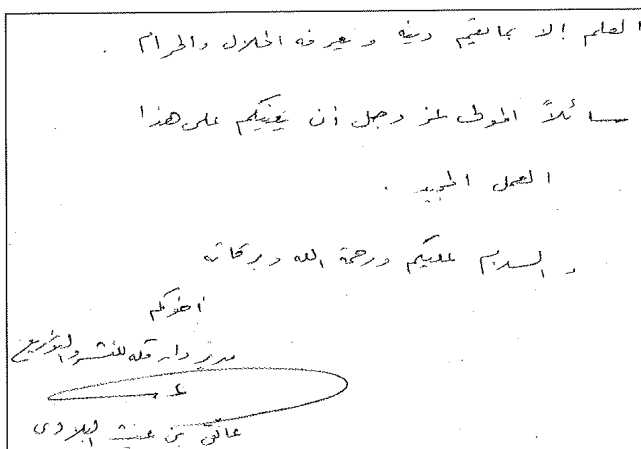 العلم إلا بما يقيم دينه و يعرفه الحلال والحرام .
سائلاً المولى عز وجل أن يعينكم على هذا
العمل المجيد .
و السلام عليكم ورحمة الله وبركاته
أخوكم
مدير دار مكة للنشر والتوزيع
عاتق بن غيث البلادي